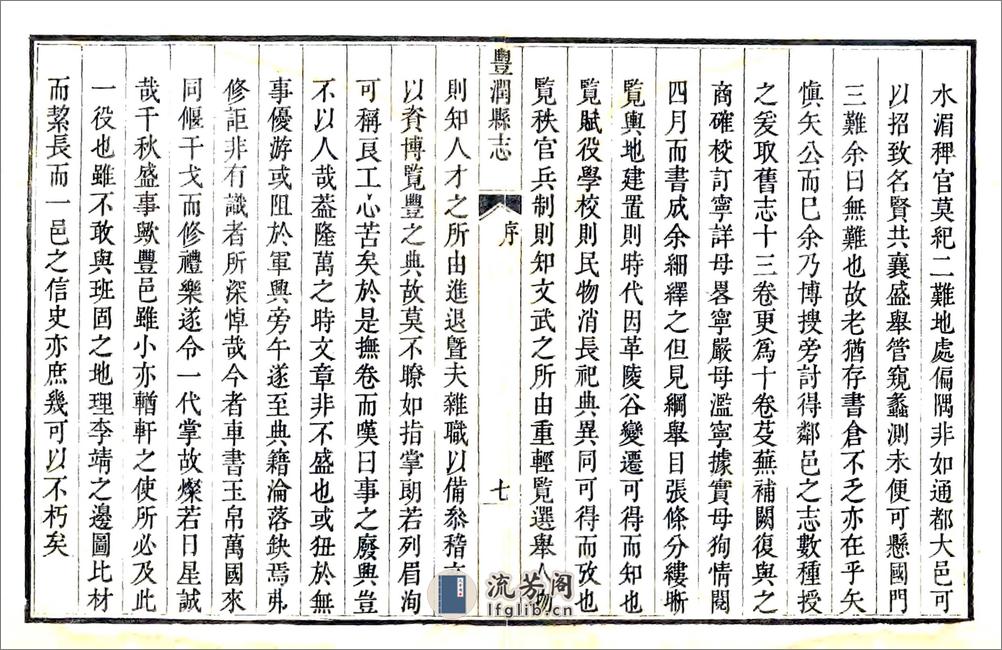 水湄稗官莫紀二難地處偏隅非如通都大邑可
以招致名賢共襄盛舉管窺蠡測未便可懸國門
三難余曰無難也故老猶存書倉不乏亦在乎矢
慎矢公而已余乃博搜旁討得鄰邑之志數種授
之爰取舊志十三卷更為十卷芟蕪補闕復與之
商確校訂寧詳毋畧寧嚴毋濫寧據實毋狥情閱
四月而書成余細繹之但見綱舉目張條分縷晰
覽輿地建置則時代因革陵谷變遷可得而知也
覽賦役學校則民物消長祀典異同可得而攷也
覽秩官兵制則知文武之所由重輕覽選舉人物
豐潤縣志
序
七
則知人才之所由進退曁夫雜職以備叅稽
以資博覽豐之典故莫不瞭如指掌朗若列眉洵
可稱良工心苦矣於是撫卷而嘆曰事之廢興豈
不以人哉葢隆萬之時文章非不盛也或狃於無
事優游或阻於軍興旁午遂至典籍淪落缺焉弗
修詎非有識者所深悼哉今者車書玉帛萬國來
同偃干戈而修禮樂遂令一代掌故燦若日星誠
哉千秋盛事歟豐邑雖小亦輶軒之使所必及此
一役也雖不敢與班固之地理李靖之邊圖比材
而絜長而一邑之信史亦庶幾可以不朽矣
流芳阁
lfglib.cn